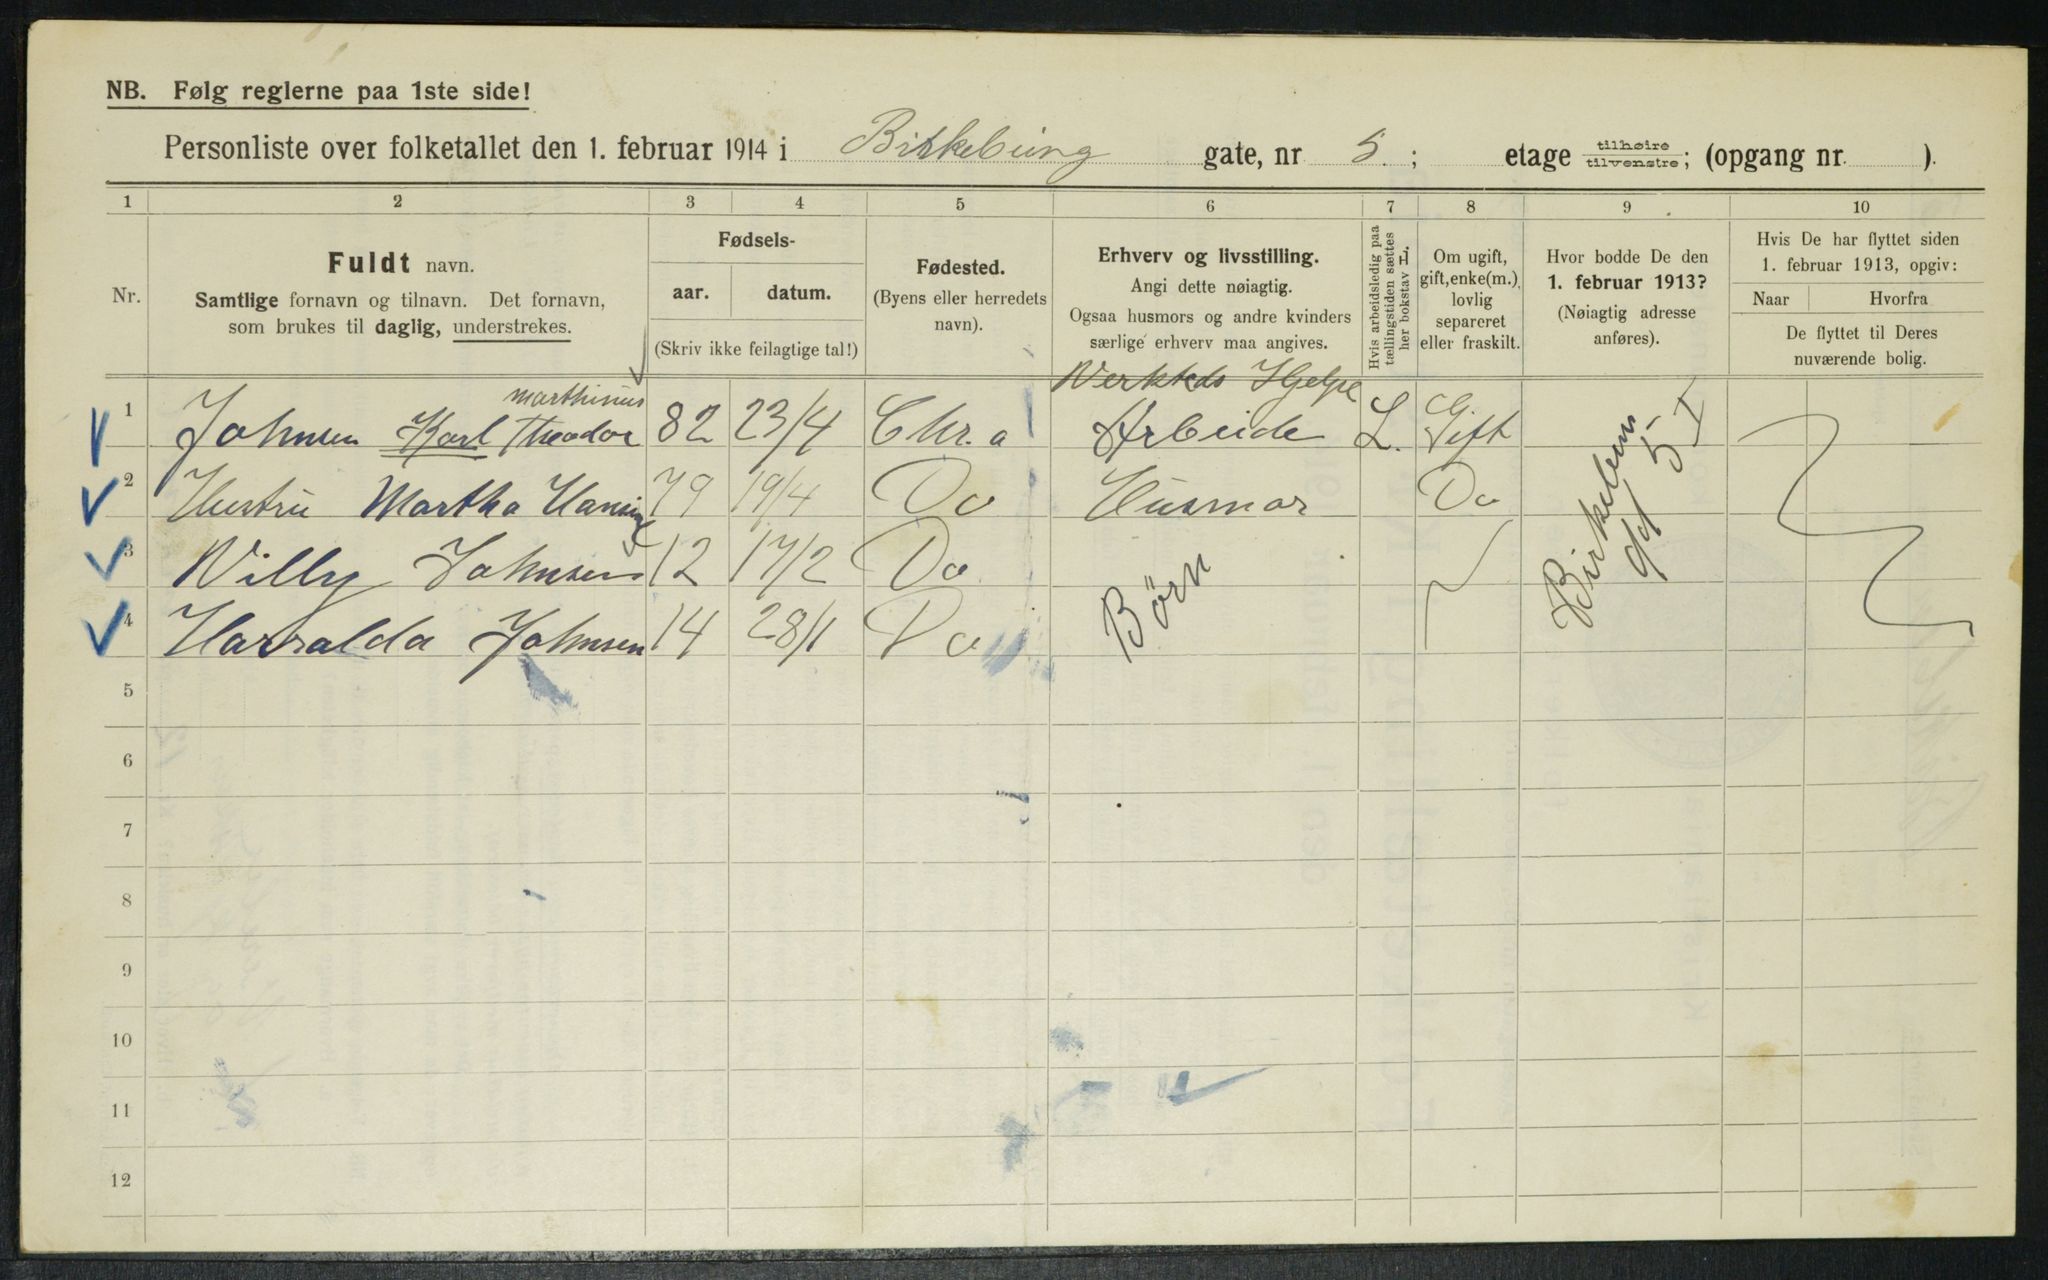 NB. Følg reglerne paa 1ste side!
Personliste over folketallet den 1. februar 1914 i Birkebung gate, nr 5. ; etage tilhøire tilvenstre; (opgang nr. ).
1 2 3 4 5 6 7 8 9 10
Nr.
Fuldt navn.
Samtlige fornavn og tilnavn. Det fornavn,
som brukes til daglig, understrekes.
Fødsels-
aar. datum.
(Skriv ikke feilagtige tal!)
Fødested.
(Byens eller herredets
navn).
Erhverv og livsstilling.
Angi dette nøiagtig.
Ogsaa husmors og andre kvinders
særlige erhverv maa angives.
Hvis arbeidsledig paa
tællingstiden sættes
her bokstav L.
Om ugift,
gift, enke(m.),
lovlig
separeret
eller fraskilt.
Hvor bodde De den
1. februar 1913?
(Nøiagtig adresse
anføres).
Hvis De har flyttet siden
1. februar 1913, opgiv:
Naar Hvorfra
De flyttet til Deres
nuværende bolig.
marthinius Verksteds Hjelpe
1 Johnsen Karl Theodor 82 23/4 Chr.a Arbeide L. Gift
2 Hustru Martha 79 19/4 Do Husmor Do
3 Willy Johnsen 12 17/2 Do
4 Harralda Johnsen 14 28/1 Do
Børn
Birkebens
gd 5 I
5
6
7
8
9
10
11
12